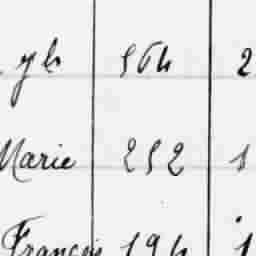 yh 564 2
Marie 252 1
François 194 1